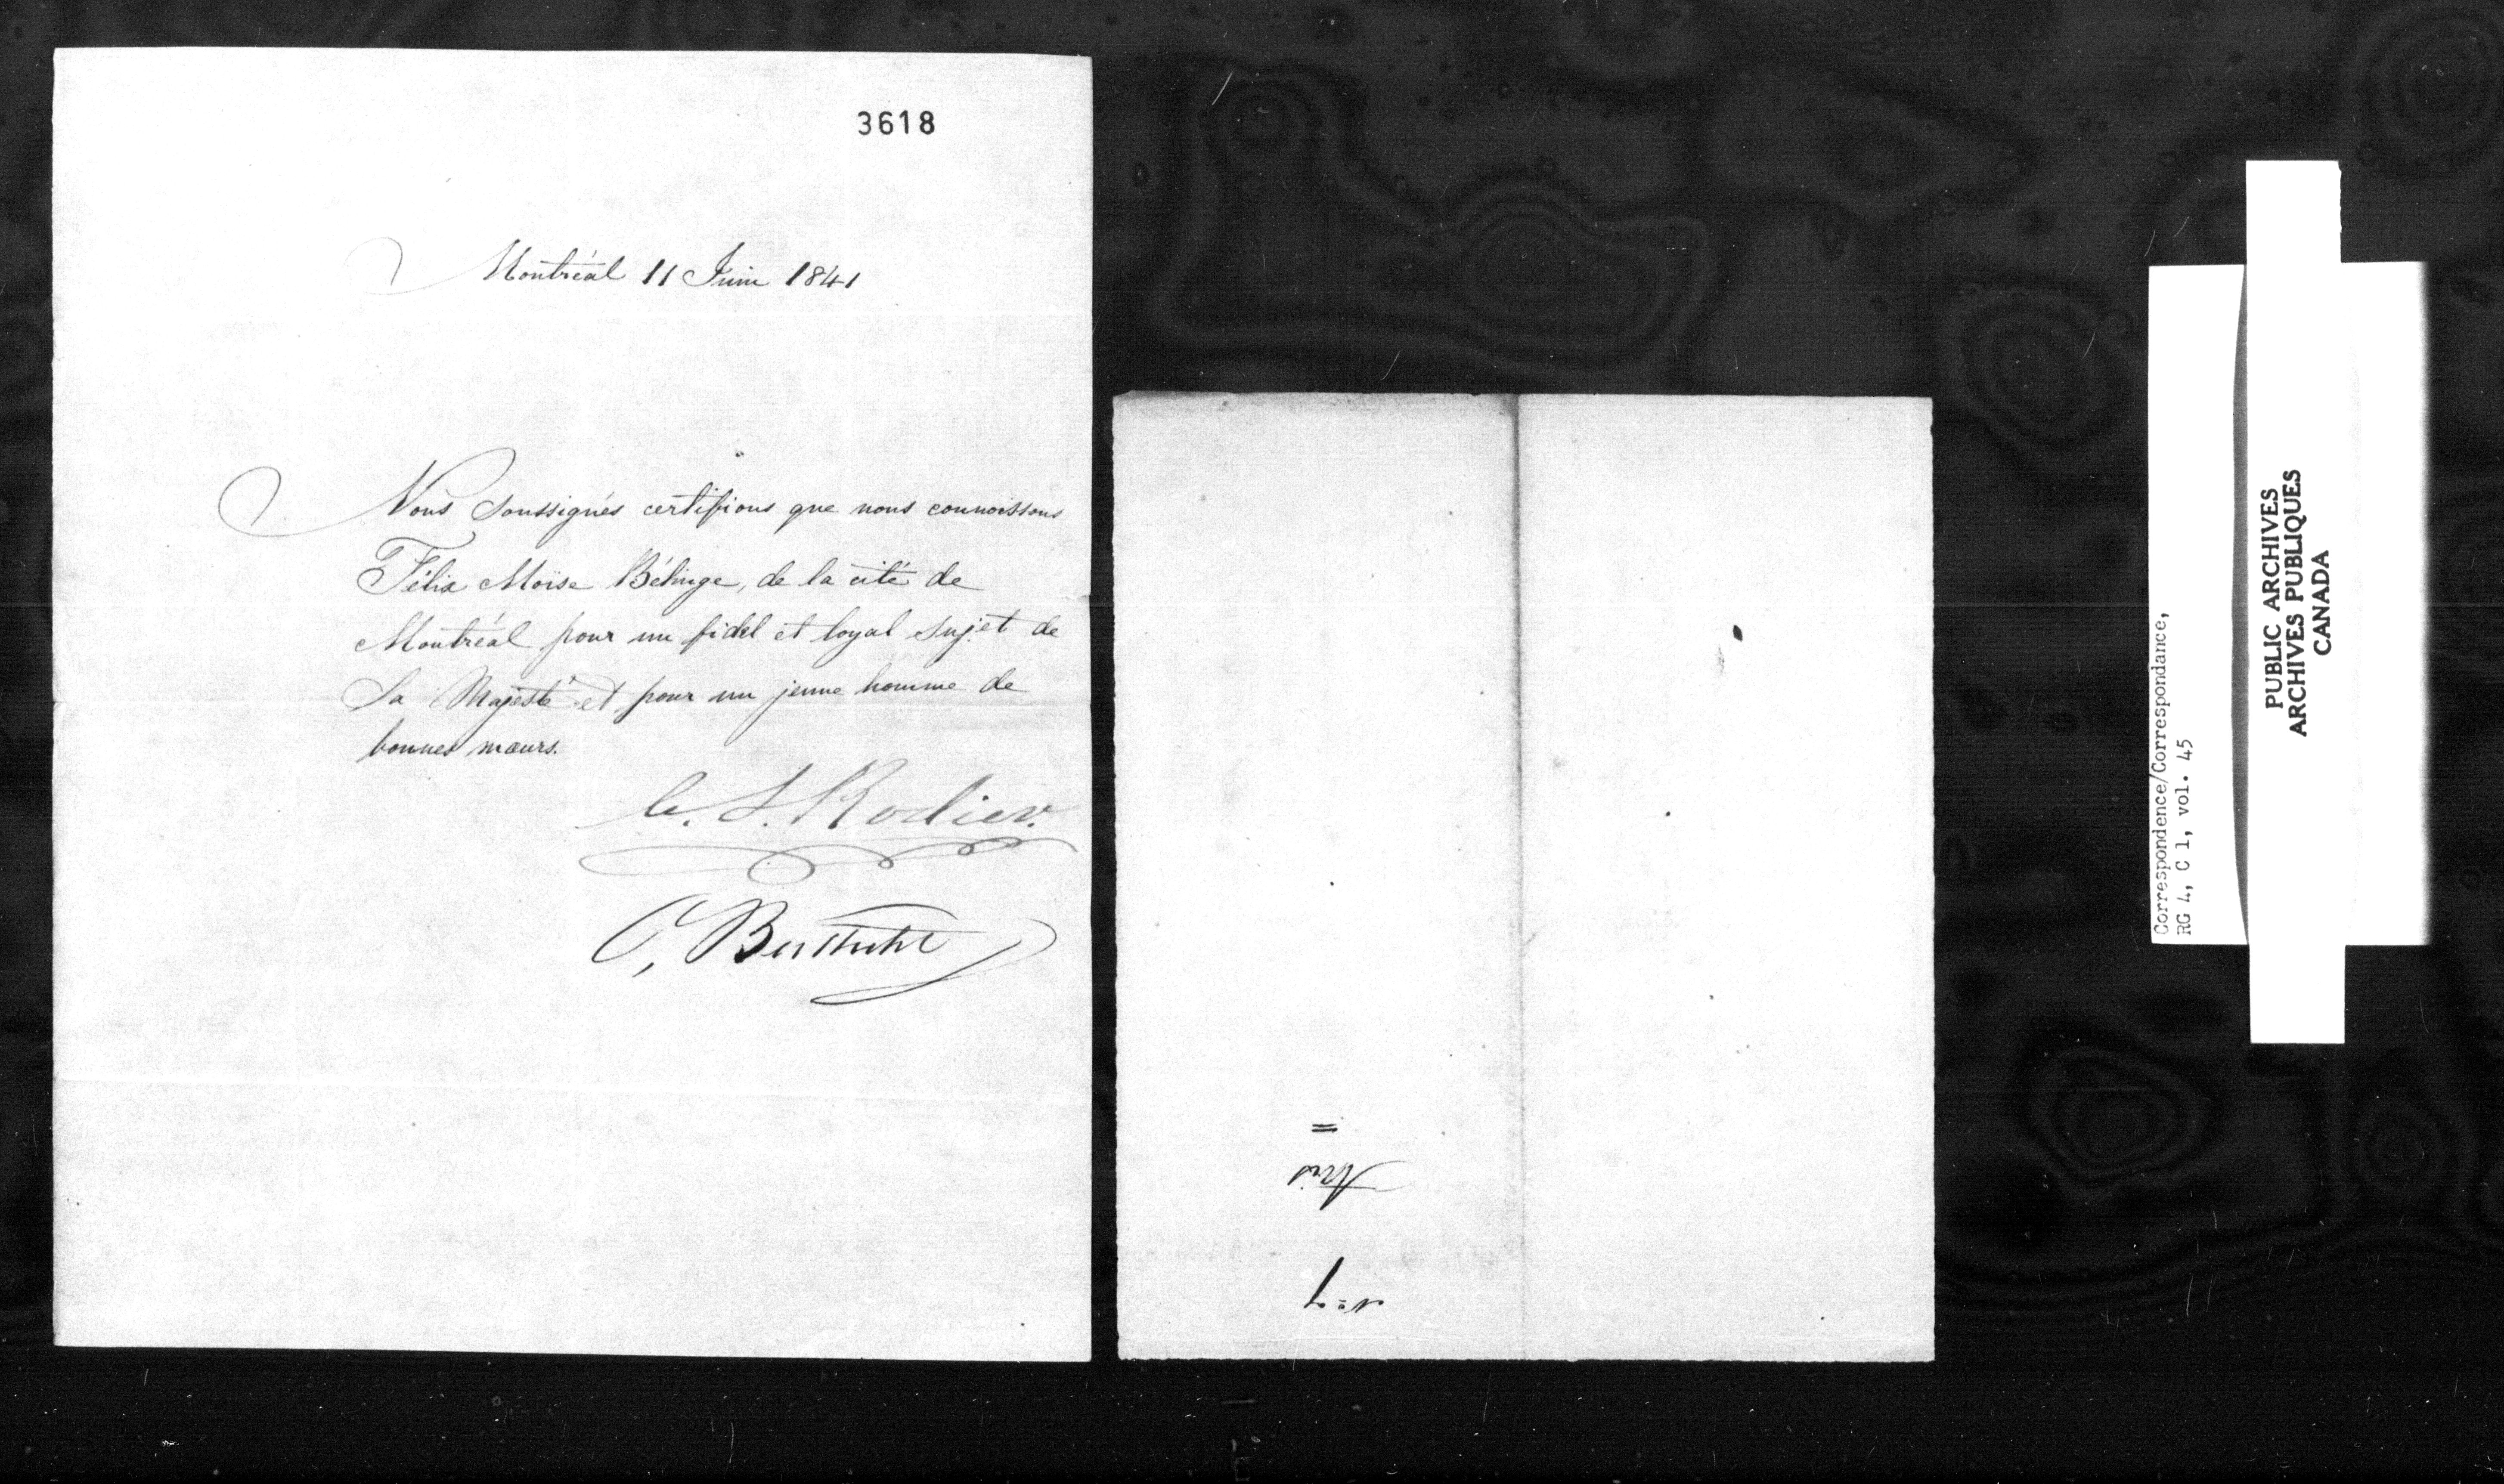 3618
Montréal 11 Juin 1841
Nous soussignés certifions que nous connoissons
Félix Moïse Bélinge, de la cité de
Montréal pour un fidel et loyal sujet de
Sa Majesté et pour un jeune homme de
bonnes mœurs.
C. S. Rodier.
Correspondence/Correspondance,
RG 4, C 1, vol. 45
PUBLIC ARCHIVES
ARCHIVES PUBLIQUES
CANADA